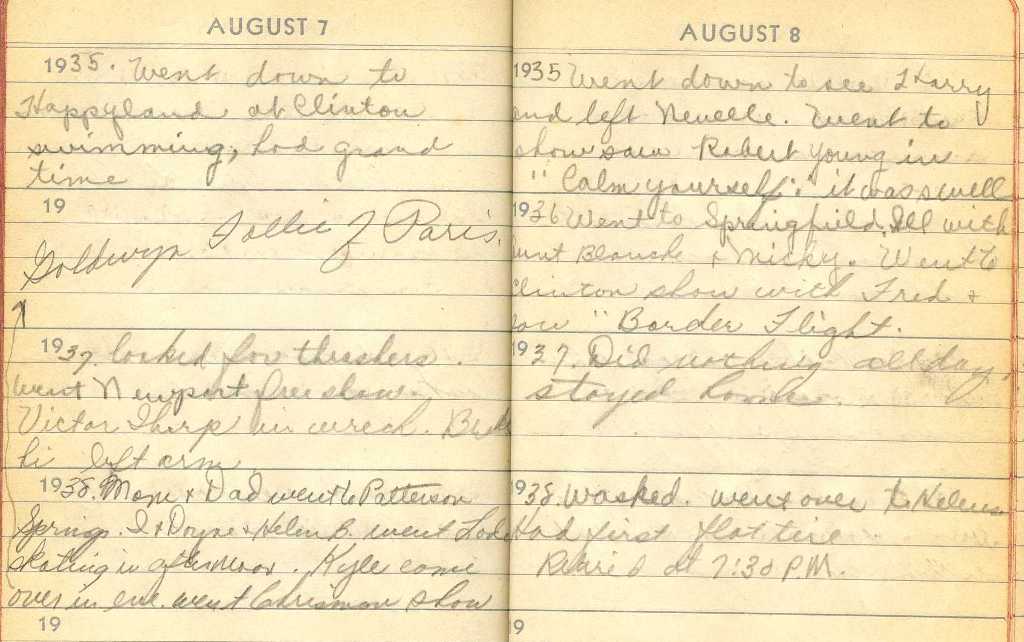 AUGUST 7
1935. Went down to
Happyland at Clinton
swimming, had grand
time
19
Goldwyn Follies of Paris.
1937. looked for threshers.
went Newport free show.
Victor Tharp in wreck.
hi left arm
1938. Mom & Dad went to Patterson
Springs. I & Doyne & Helen B. went
skating in afternoon. Kyle come
over in eve. went Chrisman show
19
AUGUST 8
1935 Went down to see Harry
and left Nevelle. Went to
show saw Robert Young in
"Calm yourself." it was swell
1936 Went to Springfield, Ill with
Aunt Blanche & Micky. Went to
Clinton show with Fred &
"Border Flight.
1937. Did nothing all day,
stayed home.
1938. Washed. went over to Helens
Had first flat tire
at 7:30 P.M.
9